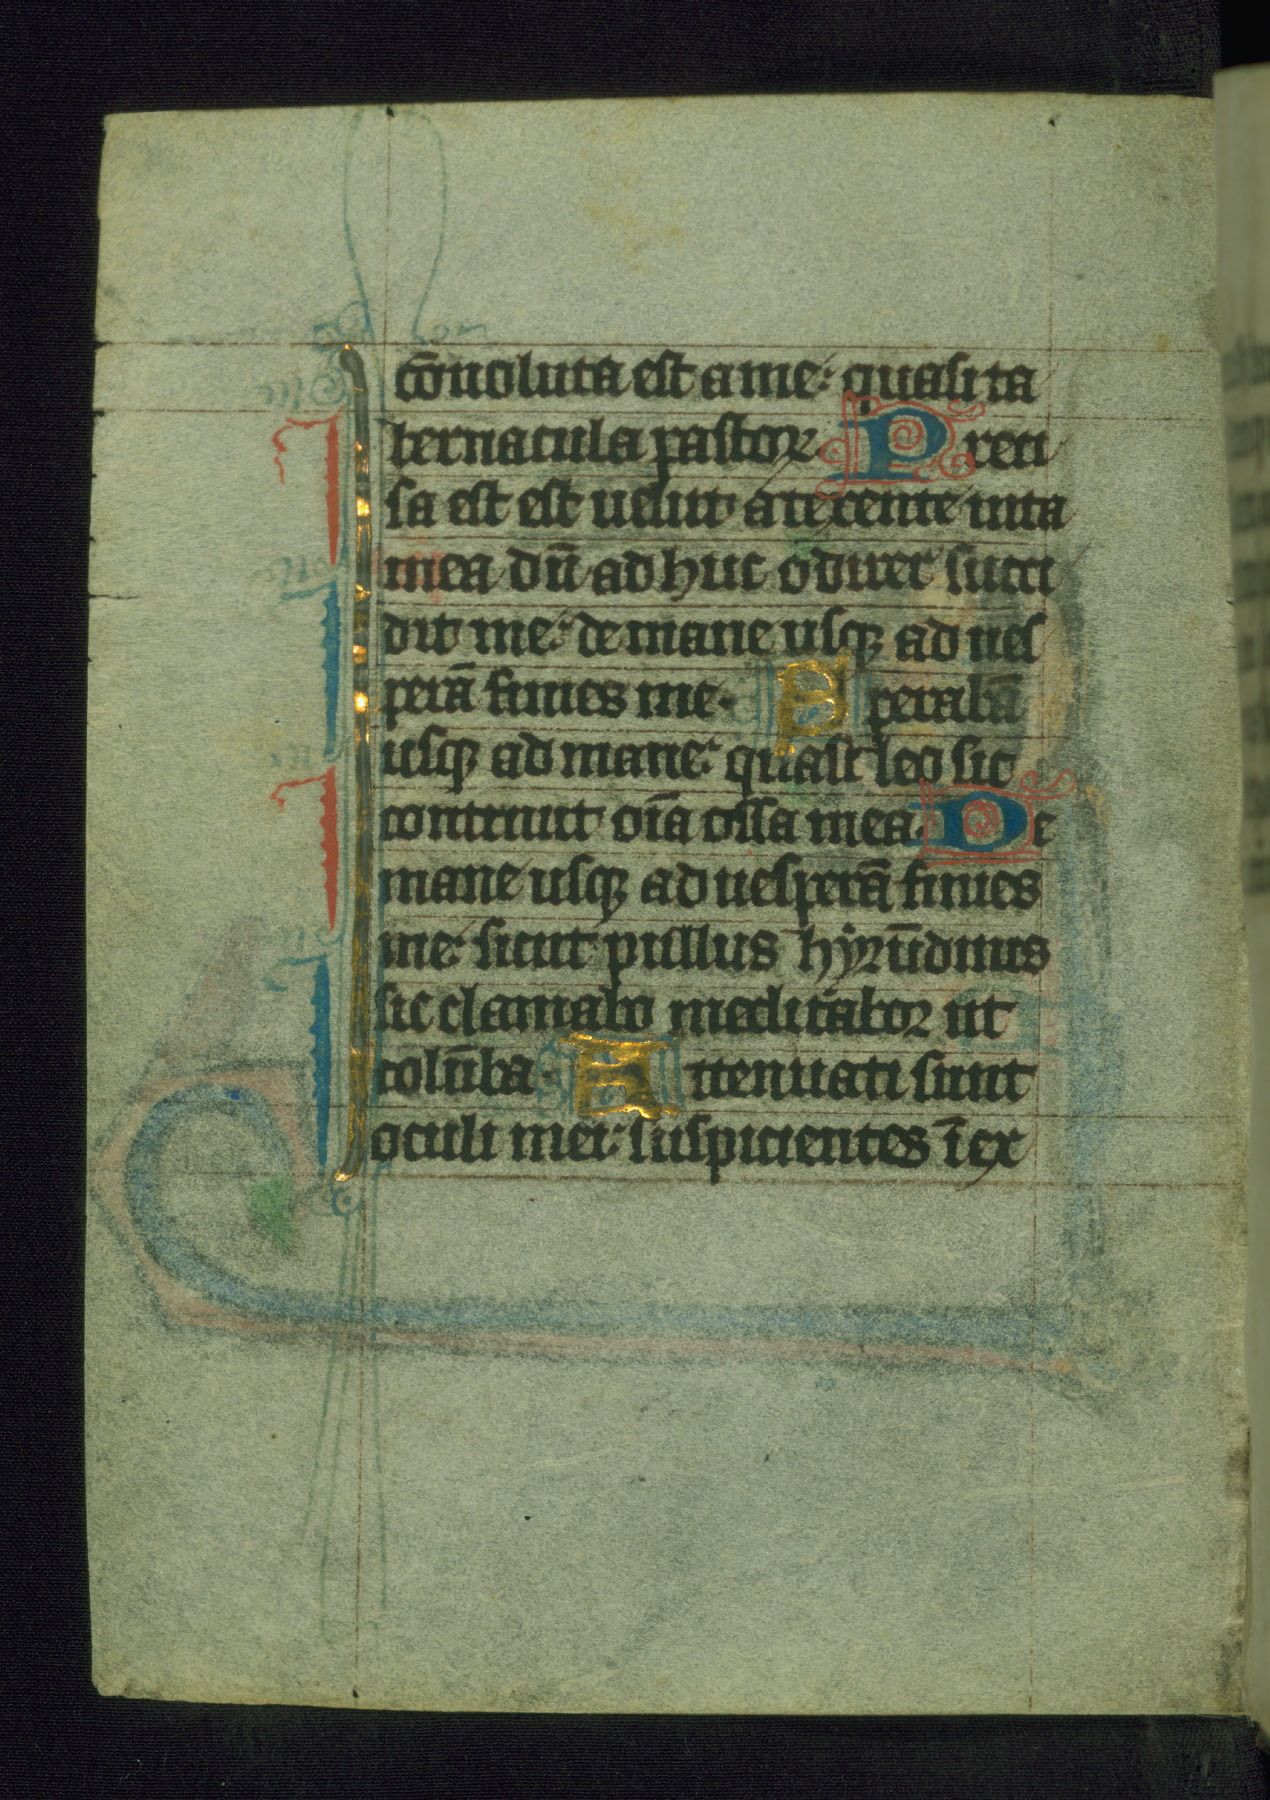 c̄onuoluta est a me: quasi ta
bernacula pastor. Preci
sa est est uelut a texente uita
mea dūm ad huc odirer succi
dit me: de mane usq̨ ad ues
perā finies me. Sperabā
usq̨ ad mane: quasi leo sic
contriuit oīa ossa mea. De
mane usq̨ ad uesperā finies
me: sicut pullus hyrūdinis
sic clamabo meditabor ut
colūba. Attenuati sunt
oculi mei: suspicientes ī ex